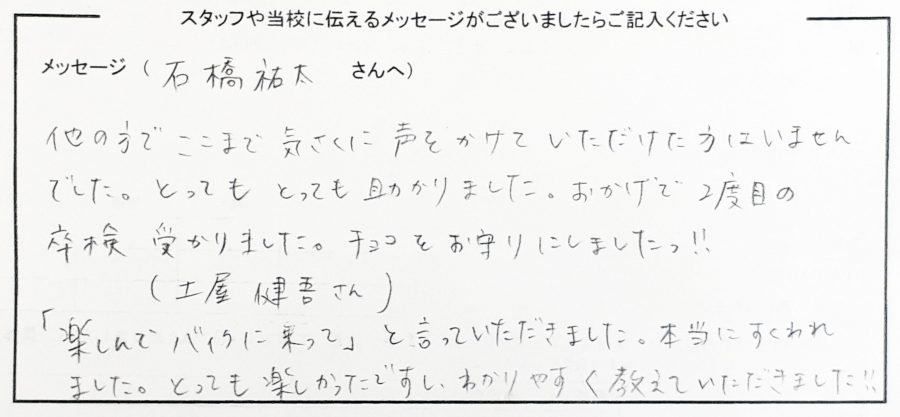 スタッフや当校に伝えるメッセージがございましたらご記入ください
メッセージ ( 石橋祐太 さんへ)
他の方で ここまで 気さくに 声を かけて いただけた 方は いません
でした。 とっても とっても 助かりました。 おかげで 2度目の
卒検 受かりました。 チョコを お守りにしましたっ!!
(土屋 健吾さん)
「楽しんで バイクに 乗って」 と言っていただきました。本当に すくわれ
ました。 とっても 楽しかったですし、わかりやすく 教えていただきました!!